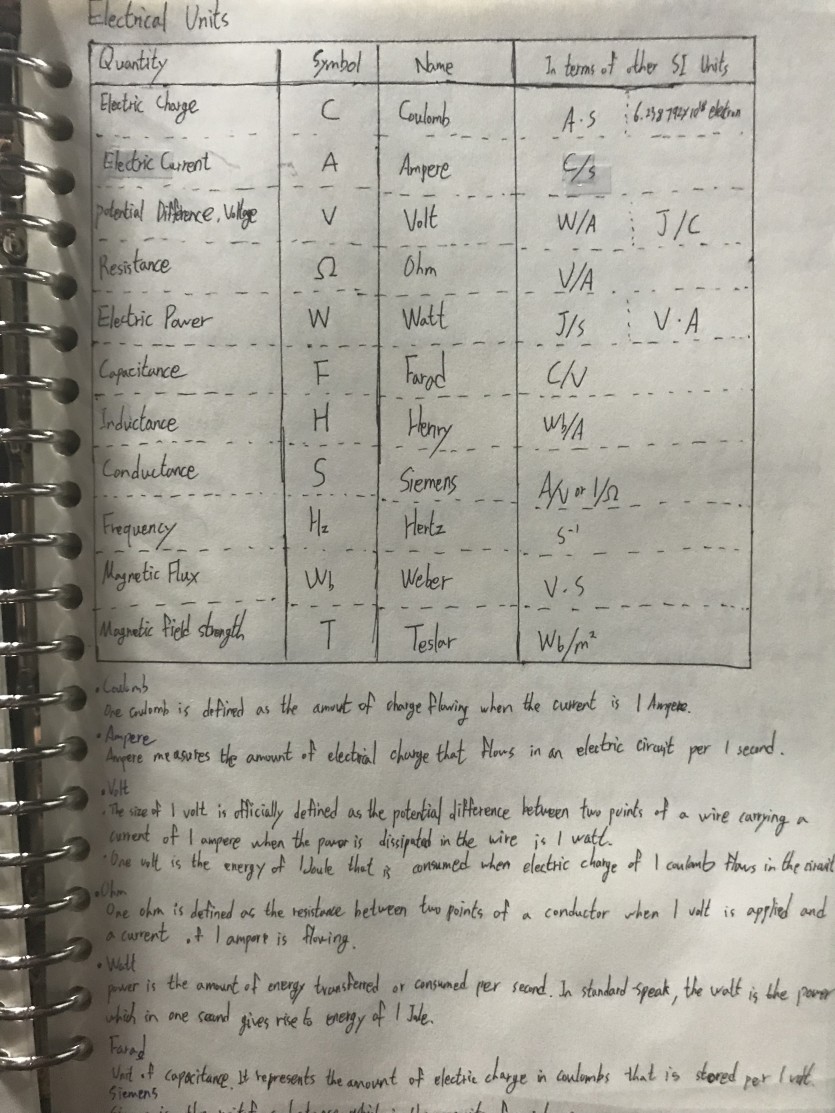 Electrical Units
Quantity Symbol Name In terms of other SI Units
Electric Charge C Coulomb A·s
Electric Current A Ampere C/s
potential Difference, Voltage V Volt W/A J/C
Resistance Ω Ohm V/A
Electric Power W Watt J/s V·A
Capacitance F Farad C/V
Inductance H Henry Wb/A
Conductance S Siemens A/V or 1/Ω
Frequency Hz Hertz s⁻¹
Magnetic Flux Wb Weber V·s
Magnetic field strength T Teslar Wb/m²
• Coulomb
One coulomb is defined as the amout of charge flowing when the current is 1 Ampere.
• Ampere
Ampere measures the amount of electrial charge that flows in an electric circuit per 1 second.
• Volt
• The size of 1 volt is officially defined as the potential difference between two points of a wire carrying a
current of 1 ampere when the power is dissipated in the wire is 1 watt.
• One volt is the energy of 1 Joule that is consumed when electric charge of 1 coulomb flows in the circuit
• Ohm
One ohm is defined as the resistance between two points of a conductor when 1 volt is applied and
a current of 1 ampere is flowing.
• Watt
power is the amount of energy transferred or consumed per second. In standard speak, the watt is the power
which in one second gives rise to energy of 1 Jule.
Farad
Unit of capacitance. It represents the amount of electric charge in coulombs that is stored per 1 volt.
Siemens